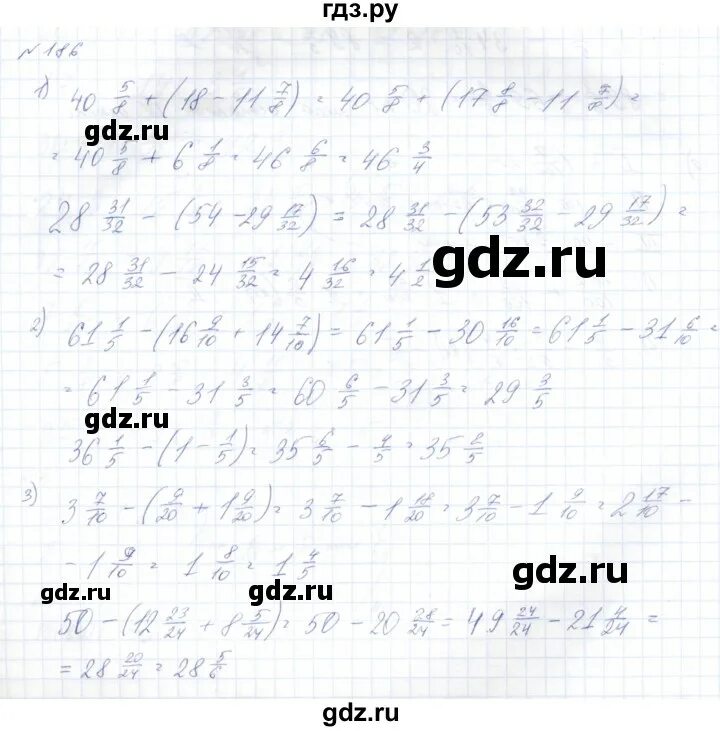 гдз.ру
№186
1) 40 5/8 + (18 - 11 7/8) = 40 5/8 + (17 8/8 - 11 7/8) =
= 40 5/8 + 6 1/8 = 46 6/8 = 46 3/4
gdz.ru
28 31/32 - (54 - 29 17/32) = 28 31/32 - (53 32/32 - 29 17/32) =
= 28 31/32 - 24 15/32 = 4 16/32 = 4 1/2
gdz.ru
2) 61 1/5 - (16 9/10 + 14 7/10) = 61 1/5 - 30 16/10 = 61 1/5 - 31 6/10 =
= 61 1/5 - 31 3/5 = 60 6/5 - 31 3/5 = 29 3/5
gdz.ru
36 1/5 - (1 - 1/5) = 35 6/5 - 4/5 = 35 2/5
3) 3 7/10 - (9/20 + 1 9/20) = 3 7/10 - 1 18/20 = 3 7/10 - 1 9/10 = 2 17/10 -
- 1 9/10 = 1 8/10 = 1 4/5
gdz.ru gdz.ru gdz.ru
50 - (12 23/24 + 8 5/24) = 50 - 20 28/24 = 49 24/24 - 21 4/24 =
= 28 20/24 = 28 5/6
gdz.ru